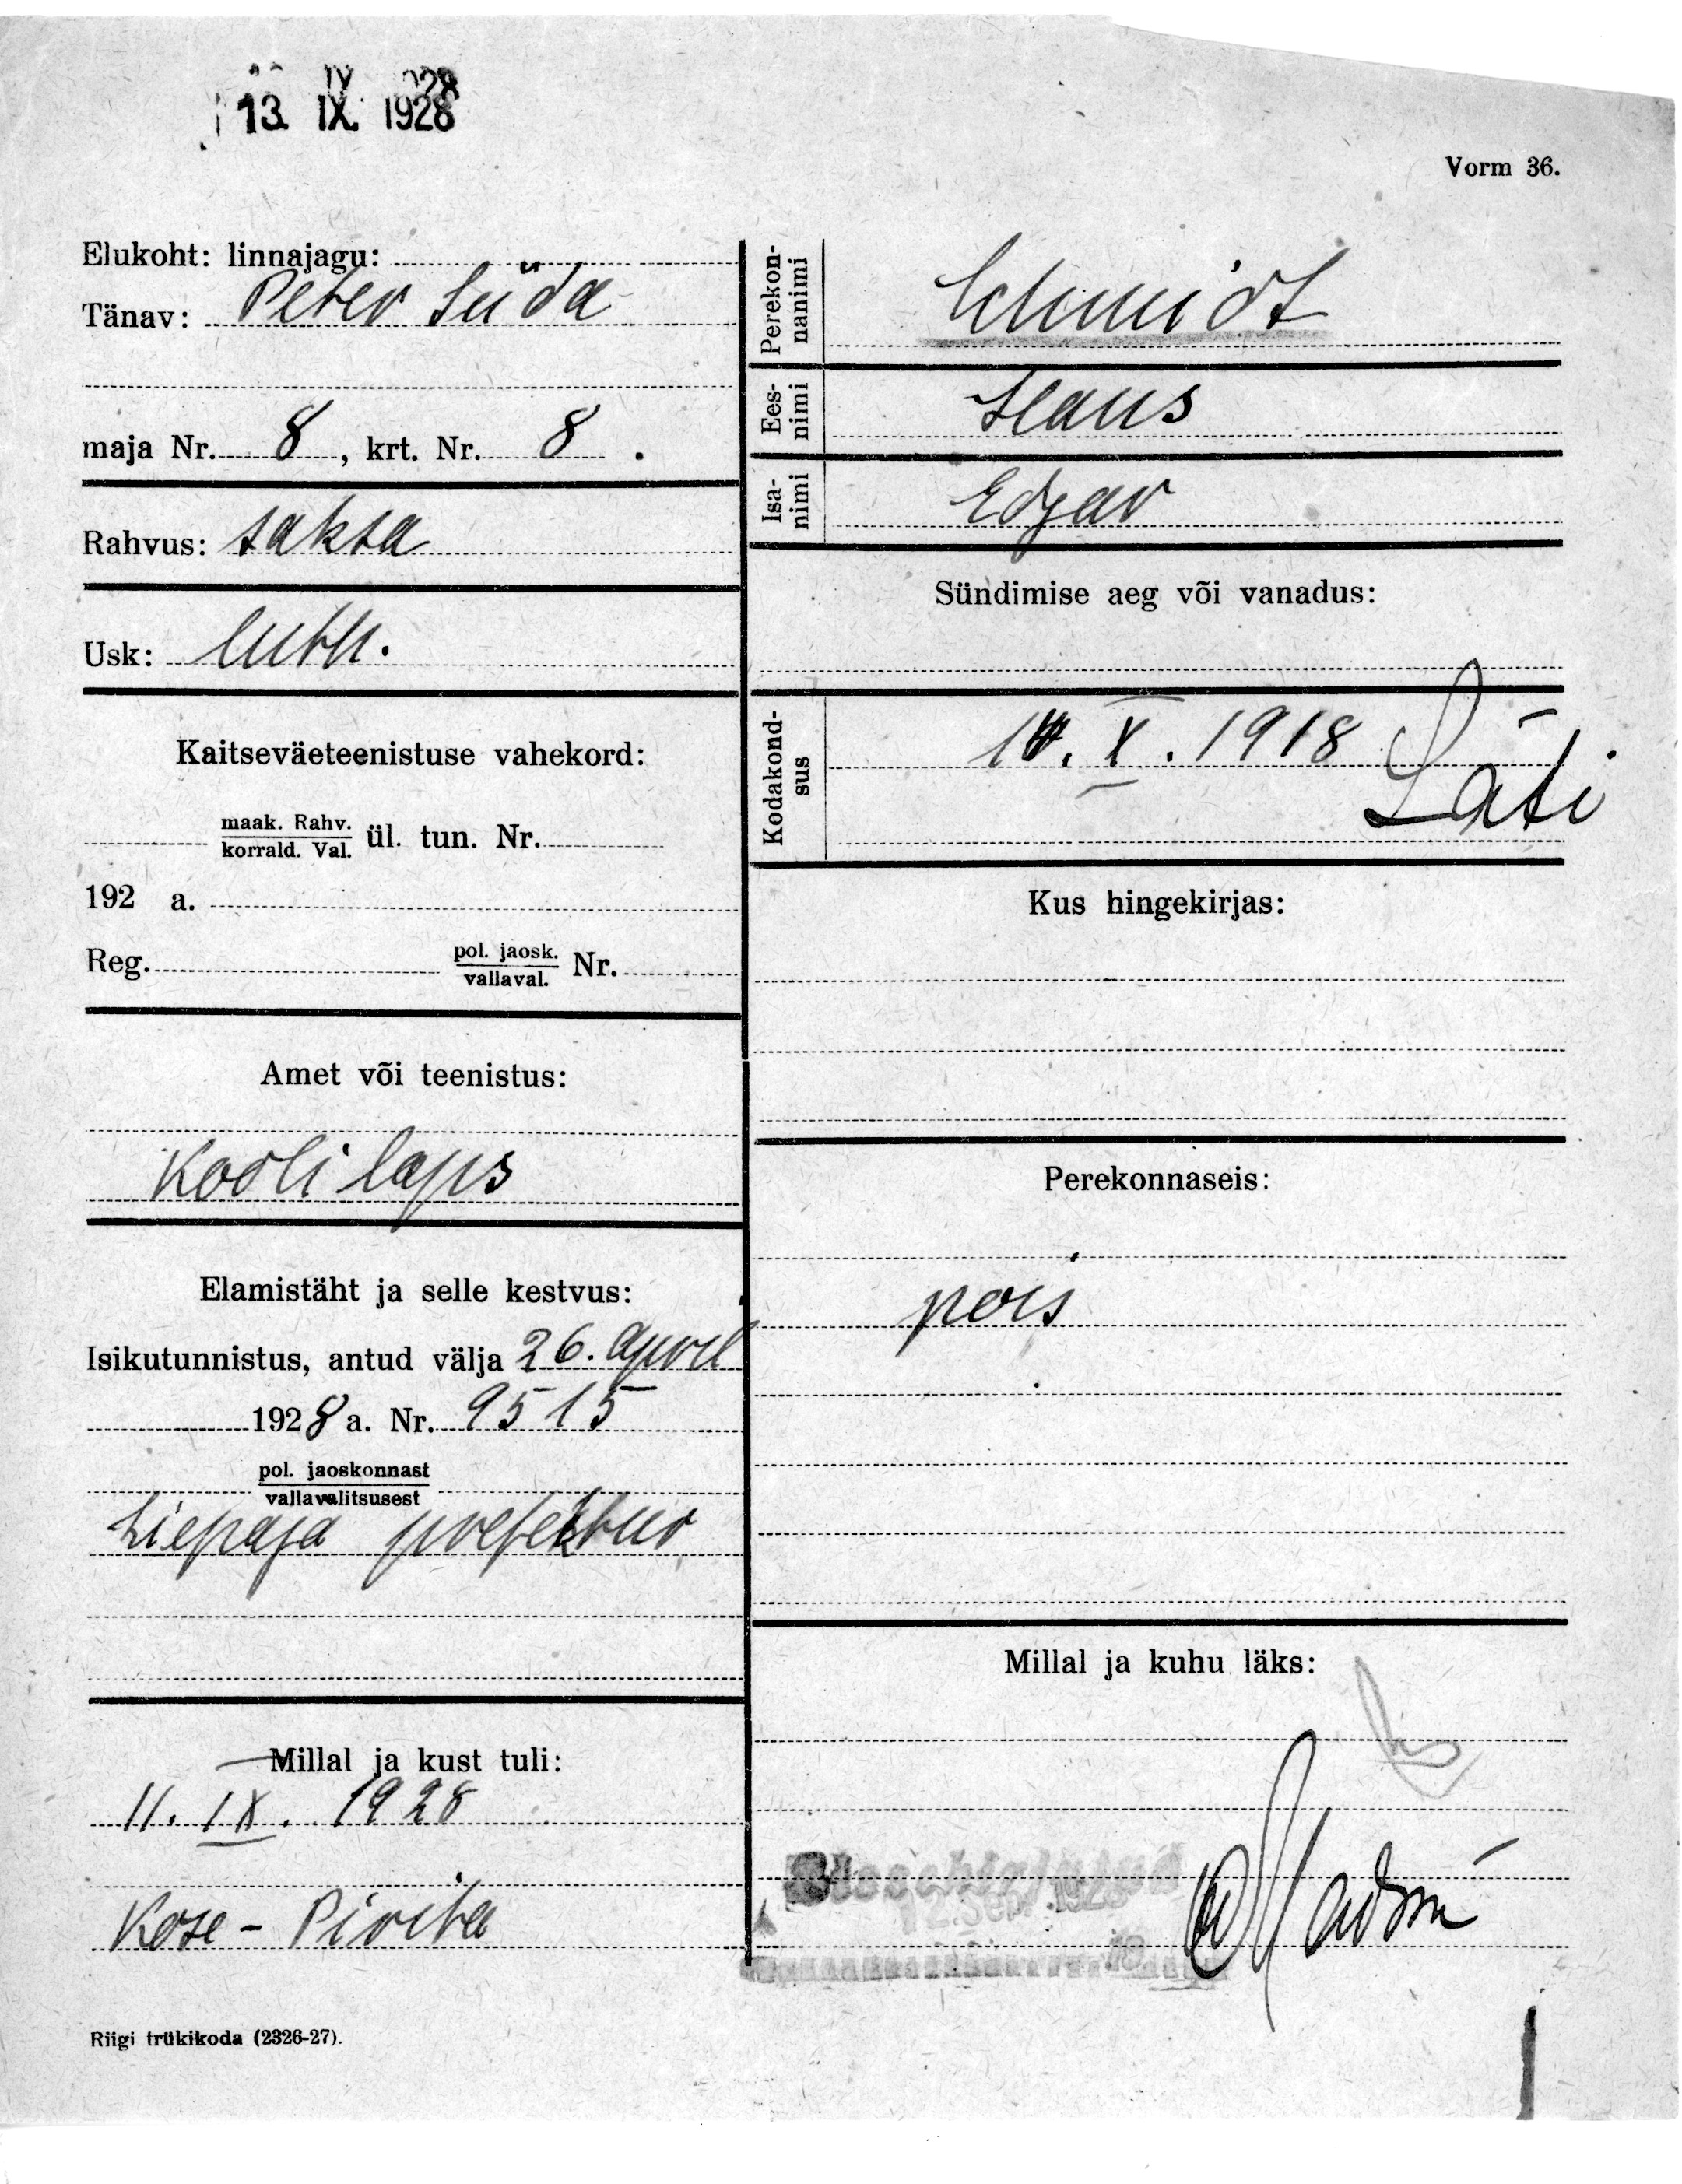 13. IX. 1928
Vorm 36.
Elukoht: linnajagu:
Tänav: Peter Süda
maja Nr. 8, krt. Nr. 8.
Rahvus: saksa
Usk: luth.
Kaitseväeteenistuse vahekord:
maak. Rahv.
korrald. Val. ül. tun. Nr.
192 a.
Reg. pol. jaosk.
vallaval. Nr.
Amet või teenistus:
Kooli laps
Elamistäht ja selle kestvus:
Isikutunnistus, antud välja 26. april
1928 a. Nr. 9515
pol. jaoskonnast
vallavalitsusest
Liepaja prefektuur
Millal ja kust tuli:
11. IX. 1928
Kose - Pirita
Riigi trükikoda (2326-27).
Perekon-
nanimi
Schmidt
Ees-
nimi
Hans
Isa-
nimi
Edgar
Sündimise aeg või vanadus:
Kodakond-
sus
X. 1918 Läti
Kus hingekirjas:
Perekonnaseis:
pois
Millal ja kuhu läks:
12. Sep. 1928